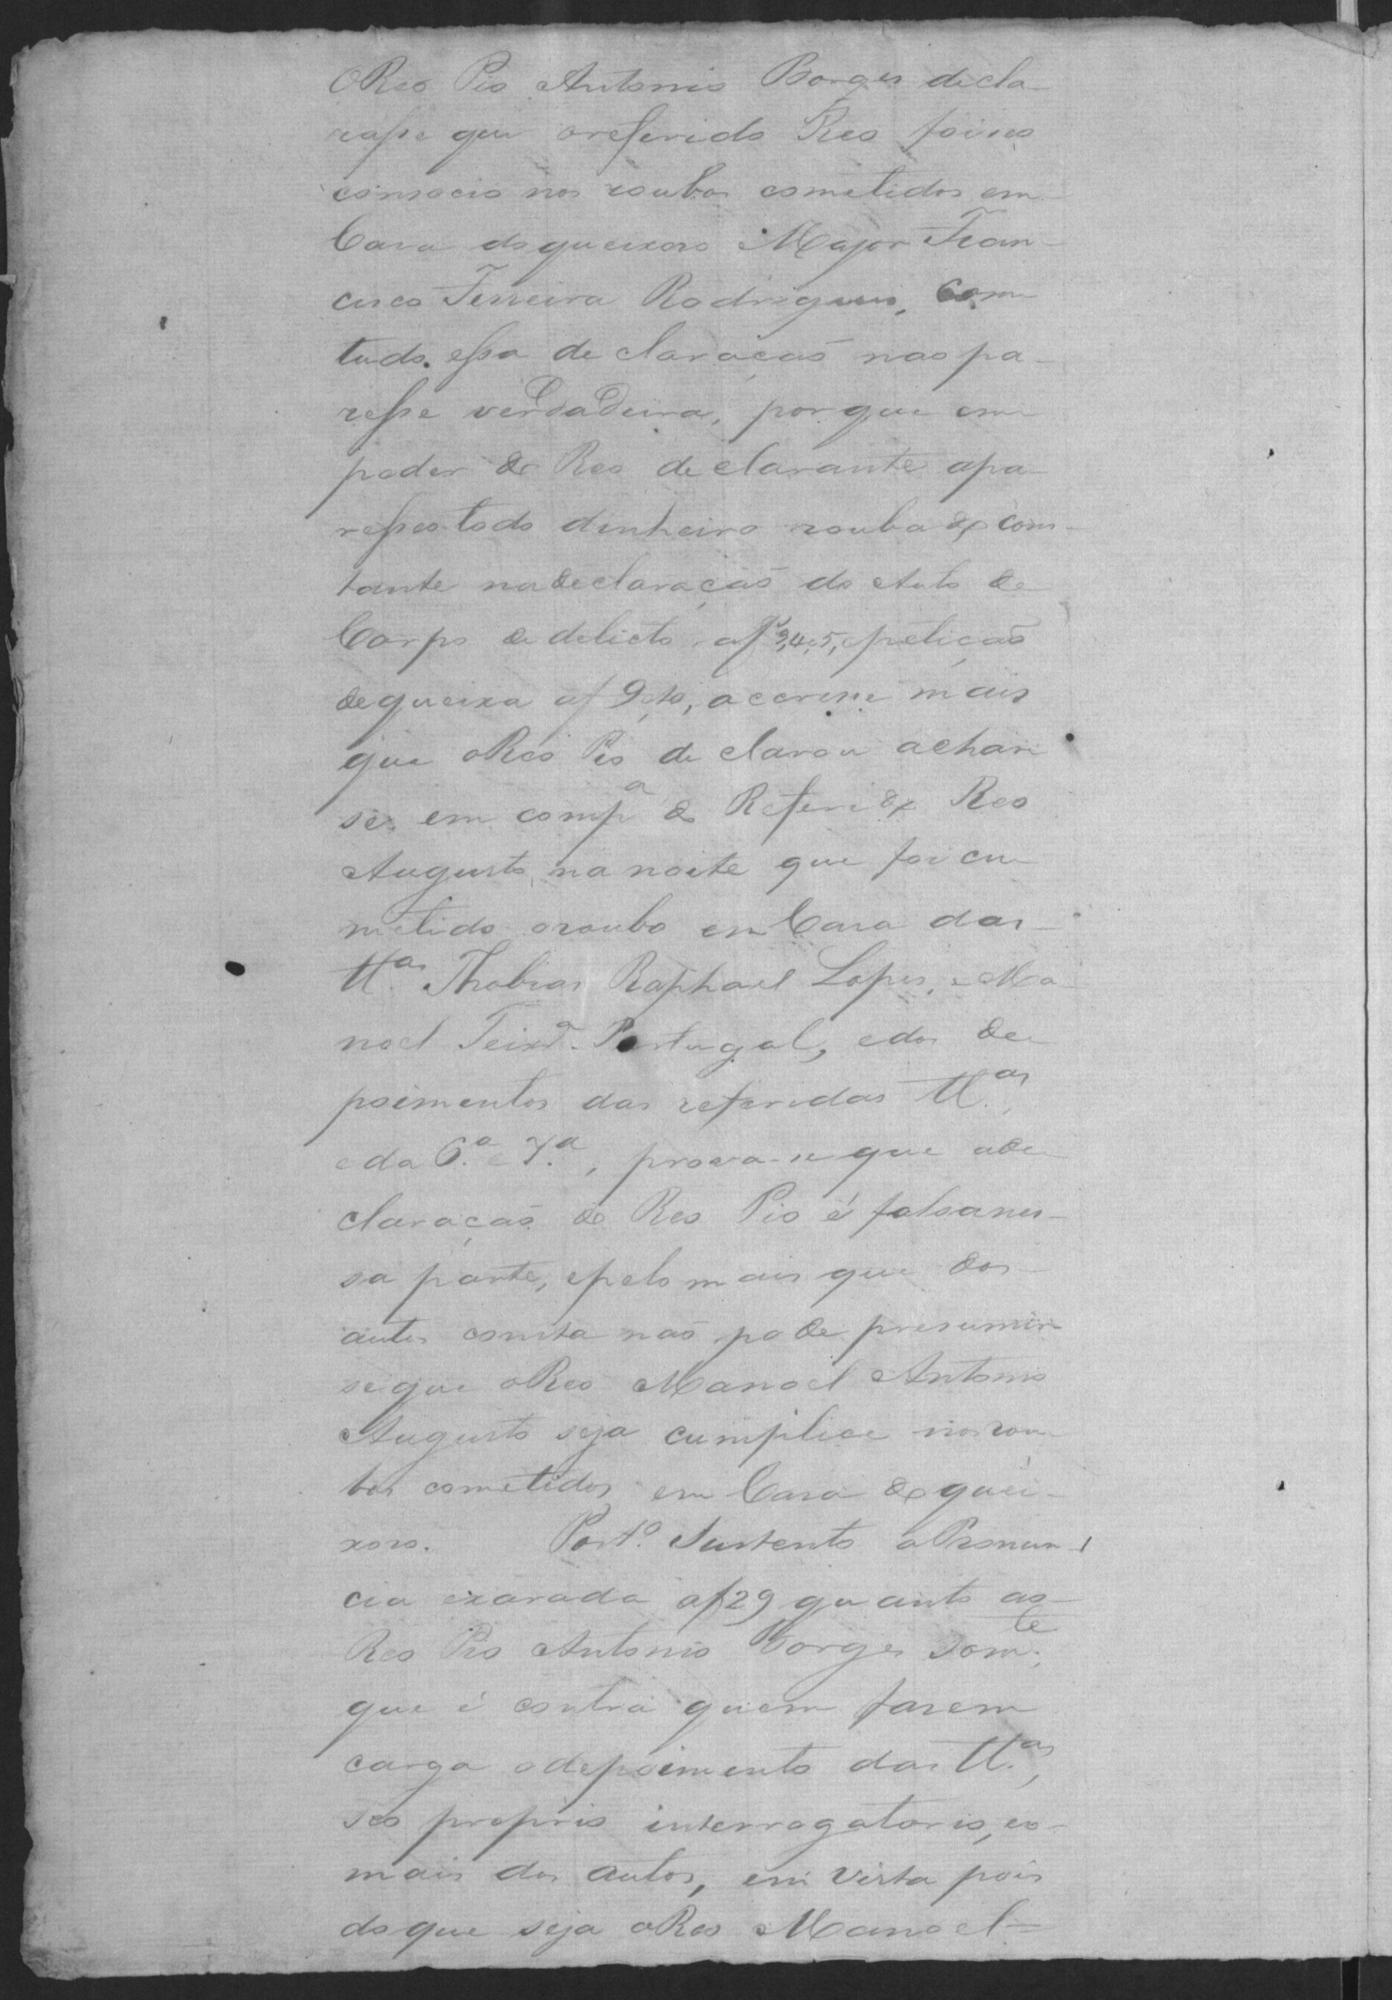 O Reo Pio Antonio Borges decla-
rasse que oreferido Reo foi seo
consocio nos roubos cometidos em
Casa do queixoso Major Fran-
cisco Ferreira Rodrigues, Com
tudo essa declaração nao pa-
resse verdadeira, porque em
poder do Reo declarante apa-
resseo todo dinheiro roubado cons-
tante na declaração do Auto de
Corpo de delicto af 3,4,5, petição
de queixa af 9 , accresse mais
que oReo Pio declarou achar
se em compª do Referido Reo
Augusto, na noite que foi cu-
metido oroubo em Casa das
ttªs Thobias Raphael Lopes, e Ma-
noel Teixrª Portugal, edos de-
poimentos das referidas ttªs,
e da 6.ª e 7.ª, prova-se que ade-
claração do Reo Pio é falsa nes-
sa parte, epelo mais que dos
autos consta naõ pode presumir
se que oReo Manoel Antonio
Augusto seja cumplice nos rou-
bos cometidos em Casa do quei-
xoso. Portº. Sustento aPronun-
cia exarada af 29 quanto ao
Reo Pio Antonio Borges somte.
que é contra quem fasem
carga odepoimento das ttªs,
seo proprio interrogatorio, eo
mais dos autos, em vista pois
do que seja oReo Manoel=